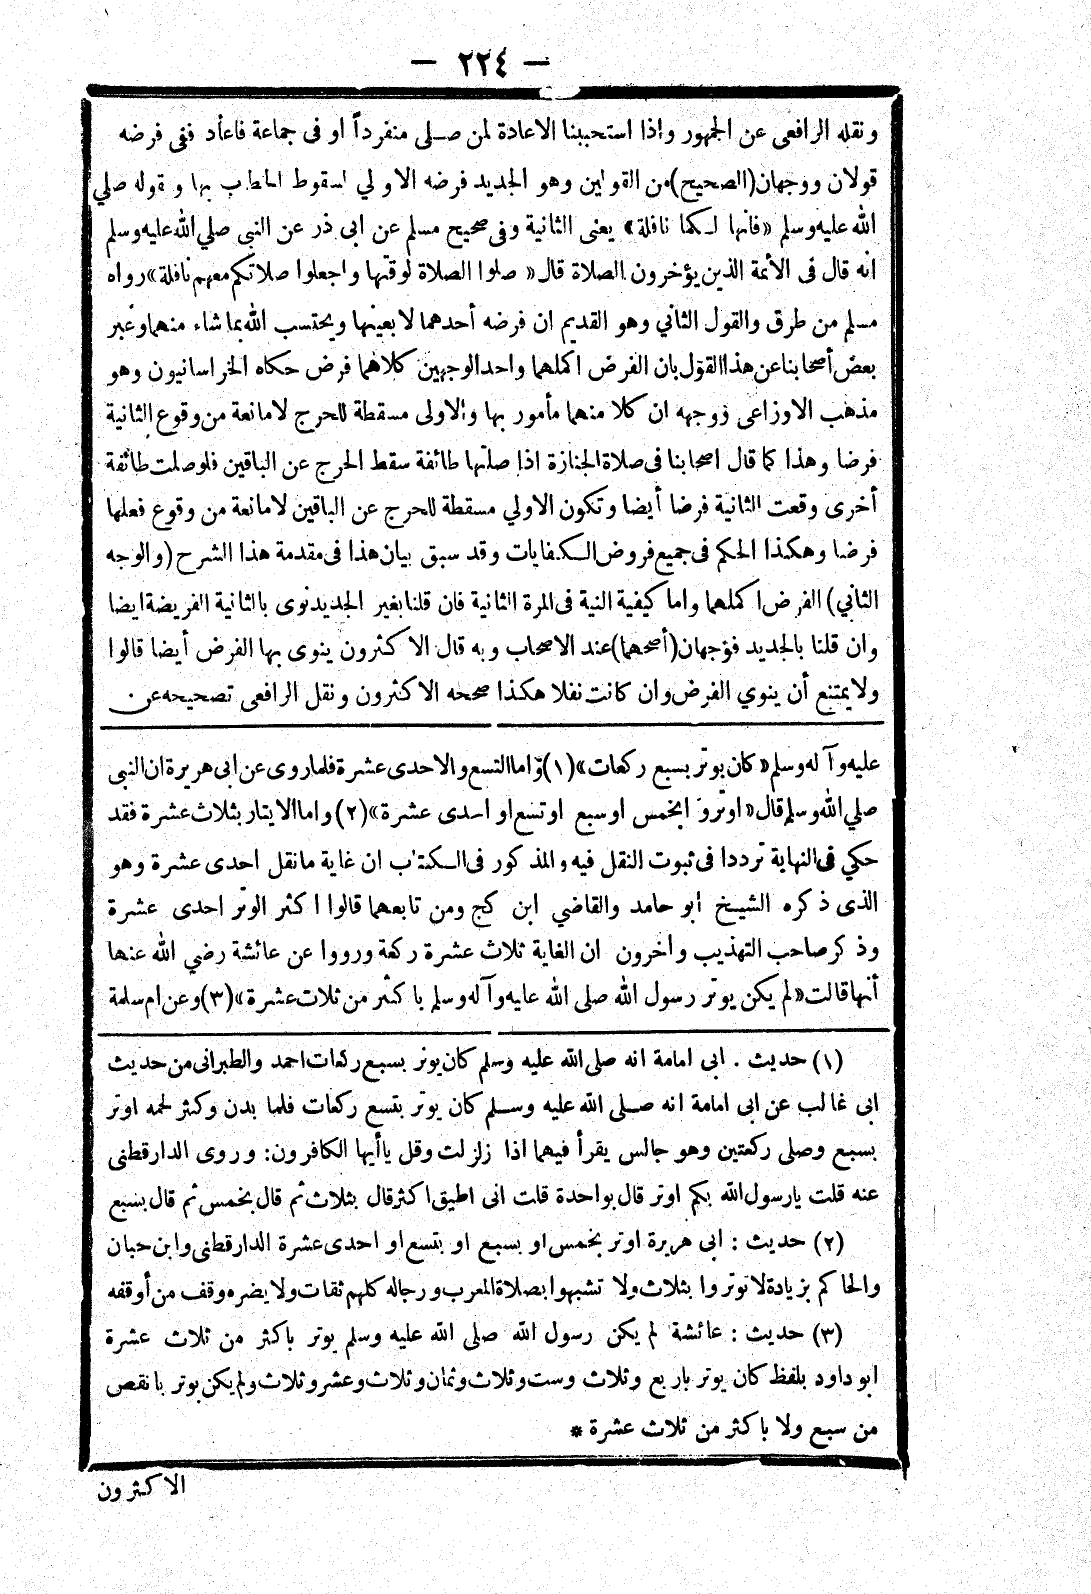 — ٢٢٤ —
ونقله الرافعى عن الجمهور وإذا استحببنا الاعادة لمن صلى منفرداً او فى جماعة فاعاد ففى فرضه
قولان ووجهان (الصحيح) من القولين وهو الجديد فرضه الاولي لسقوط الخطاب بها وقوله صلي
الله عليه وسلم «فانها لكما نافلة» يعنى الثانية وفى صحيح مسلم عن ابى ذر عن النبى صلي الله عليه وسلم
انه قال فى الأئمة الذين يؤخرون الصلاة قال « صلوا الصلاة لوقتها واجعلوا صلاتكم معهم نافلة » رواه
مسلم من طرق والقول الثاني وهو القديم ان فرضه أحدهما لا بعينها ويحتسب الله بما شاء منهما وعبر
بعض أصحابنا عن هذا القول بان الفرض اكملهما واحد الوجهين كلاهما فرض حكاه الخراسانيون وهو
مذهب الاوزاعى ووجهه ان كلا منهما مأمور بها والاولى مسقطة للحرج لا مانعة من وقوع الثانية
فرضا وهذا كما قال اصحابنا فى صلاة الجنازة اذا صلتها طائفة سقط الحرج عن الباقين فلو صلت طائفة
أخرى وقعت الثانية فرضا أيضا وتكون الاولي مسقطة للحرج عن الباقين لا مانعة من وقوع فعلها
فرضا وهكذا الحكم فى جميع فروض الكفايات وقد سبق بيان هذا فى مقدمة هذا الشرح (والوجه
الثاني) الفرض اكملهما واما كيفية النية فى المرة الثانية فان قلنا بغير الجديد نوى بالثانية الفريضة ايضا
وان قلنا بالجديد فوجهان (أصحهما) عند الاصحاب وبه قال الاكثرون ينوى بها الفرض أيضا قالوا
ولا يمتنع أن ينوي الفرض وان كانت نفلا هكذا صححه الاكثرون ونقل الرافعى تصحيحه عن
عليه وآله وسلم « كان يوتر بسبع ركعات » (١) واما التسع والاحدى عشرة فلما روى عن ابى هريرة ان النبى
صلي الله وسلم قال « اوتروا بخمس او سبع او تسع او احدى عشرة » (٢) واما الايتار بثلاث عشرة فقد
حكي فى النهاية ترددا فى ثبوت النقل فيه والمذكور فى الكتاب ان غاية ما نقل احدى عشرة وهو
الذى ذكره الشيخ ابو حامد والقاضي ابن كج ومن تابعهما قالوا اكثر الوتر احدى عشرة
وذكر صاحب التهذيب وآخرون ان الغاية ثلاث عشرة ركعة ورووا عن عائشة رضي الله عنها
أنها قالت « لم يكن يوتر رسول الله صلى الله عليه وآله وسلم باكثر من ثلاث عشرة » (٣) وعن ام سلمة
(١) حديث . ابى امامة انه صلى الله عليه وسلم كان يوتر بسبع ركعات احمد والطبرانى من حديث
ابى غالب عن ابى امامة انه صلى الله عليه وسلم كان يوتر بتسع ركعات فلما بدن وكثر لحمه اوتر
بسبع وصلى ركعتين وهو جالس يقرأ فيهما اذا زلزلت وقل ياأيها الكافرون: وروى الدارقطنى
عنه قلت يارسول الله بكم اوتر قال بواحدة قلت انى اطيق اكثر قال بثلاث ثم قال بخمس ثم قال بسبع
(٢) حديث : ابى هريرة اوتر بخمس او بسبع او بتسع او احدى عشرة الدارقطنى وابن حبان
والحاكم بزيادة لا توتروا بثلاث ولا تشبهوا بصلاة المغرب ورجاله كلهم ثقات ولا يضره وقف من أوقفه
(٣) حديث : عائشة لم يكن رسول الله صلى الله عليه وسلم يوتر باكثر من ثلاث عشرة
ابو داود بلفظ كان يوتر باربع وثلاث وست وثلاث وثمان وثلاث وعشر وثلاث ولم يكن يوتر بانقص
من سبع ولا باكثر من ثلاث عشرة *
الاكثرون